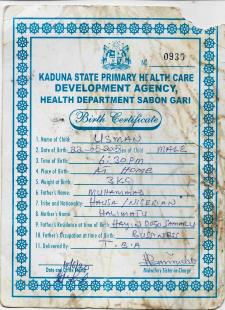 № 0935
KADUNA STATE PRIMARY HEALTH CARE
DEVELOPMENT AGENCY,
HEALTH DEPARTMENT SABON GARI
Birth Certificate
1. Name of Child: USMAN
2. Date of Birth: Sex of Child: MALE
3. Time of Birth: 6:30pm
4. Place of Birth: At HOME
5. Weight at Birth: 3KG
6. Father's Name: MUHAMMAD
7. Tribe and Nationality: HAUSA/NIGERIAN
8. Mother's Name: HALIMATU
9. Father's Residence at time of Birth: SAMARU
10. Father's Occupation at time of Birth: BUSINESS
11. Delivered by: T.B.A
Date and
Midwifery Sister-in-Charge